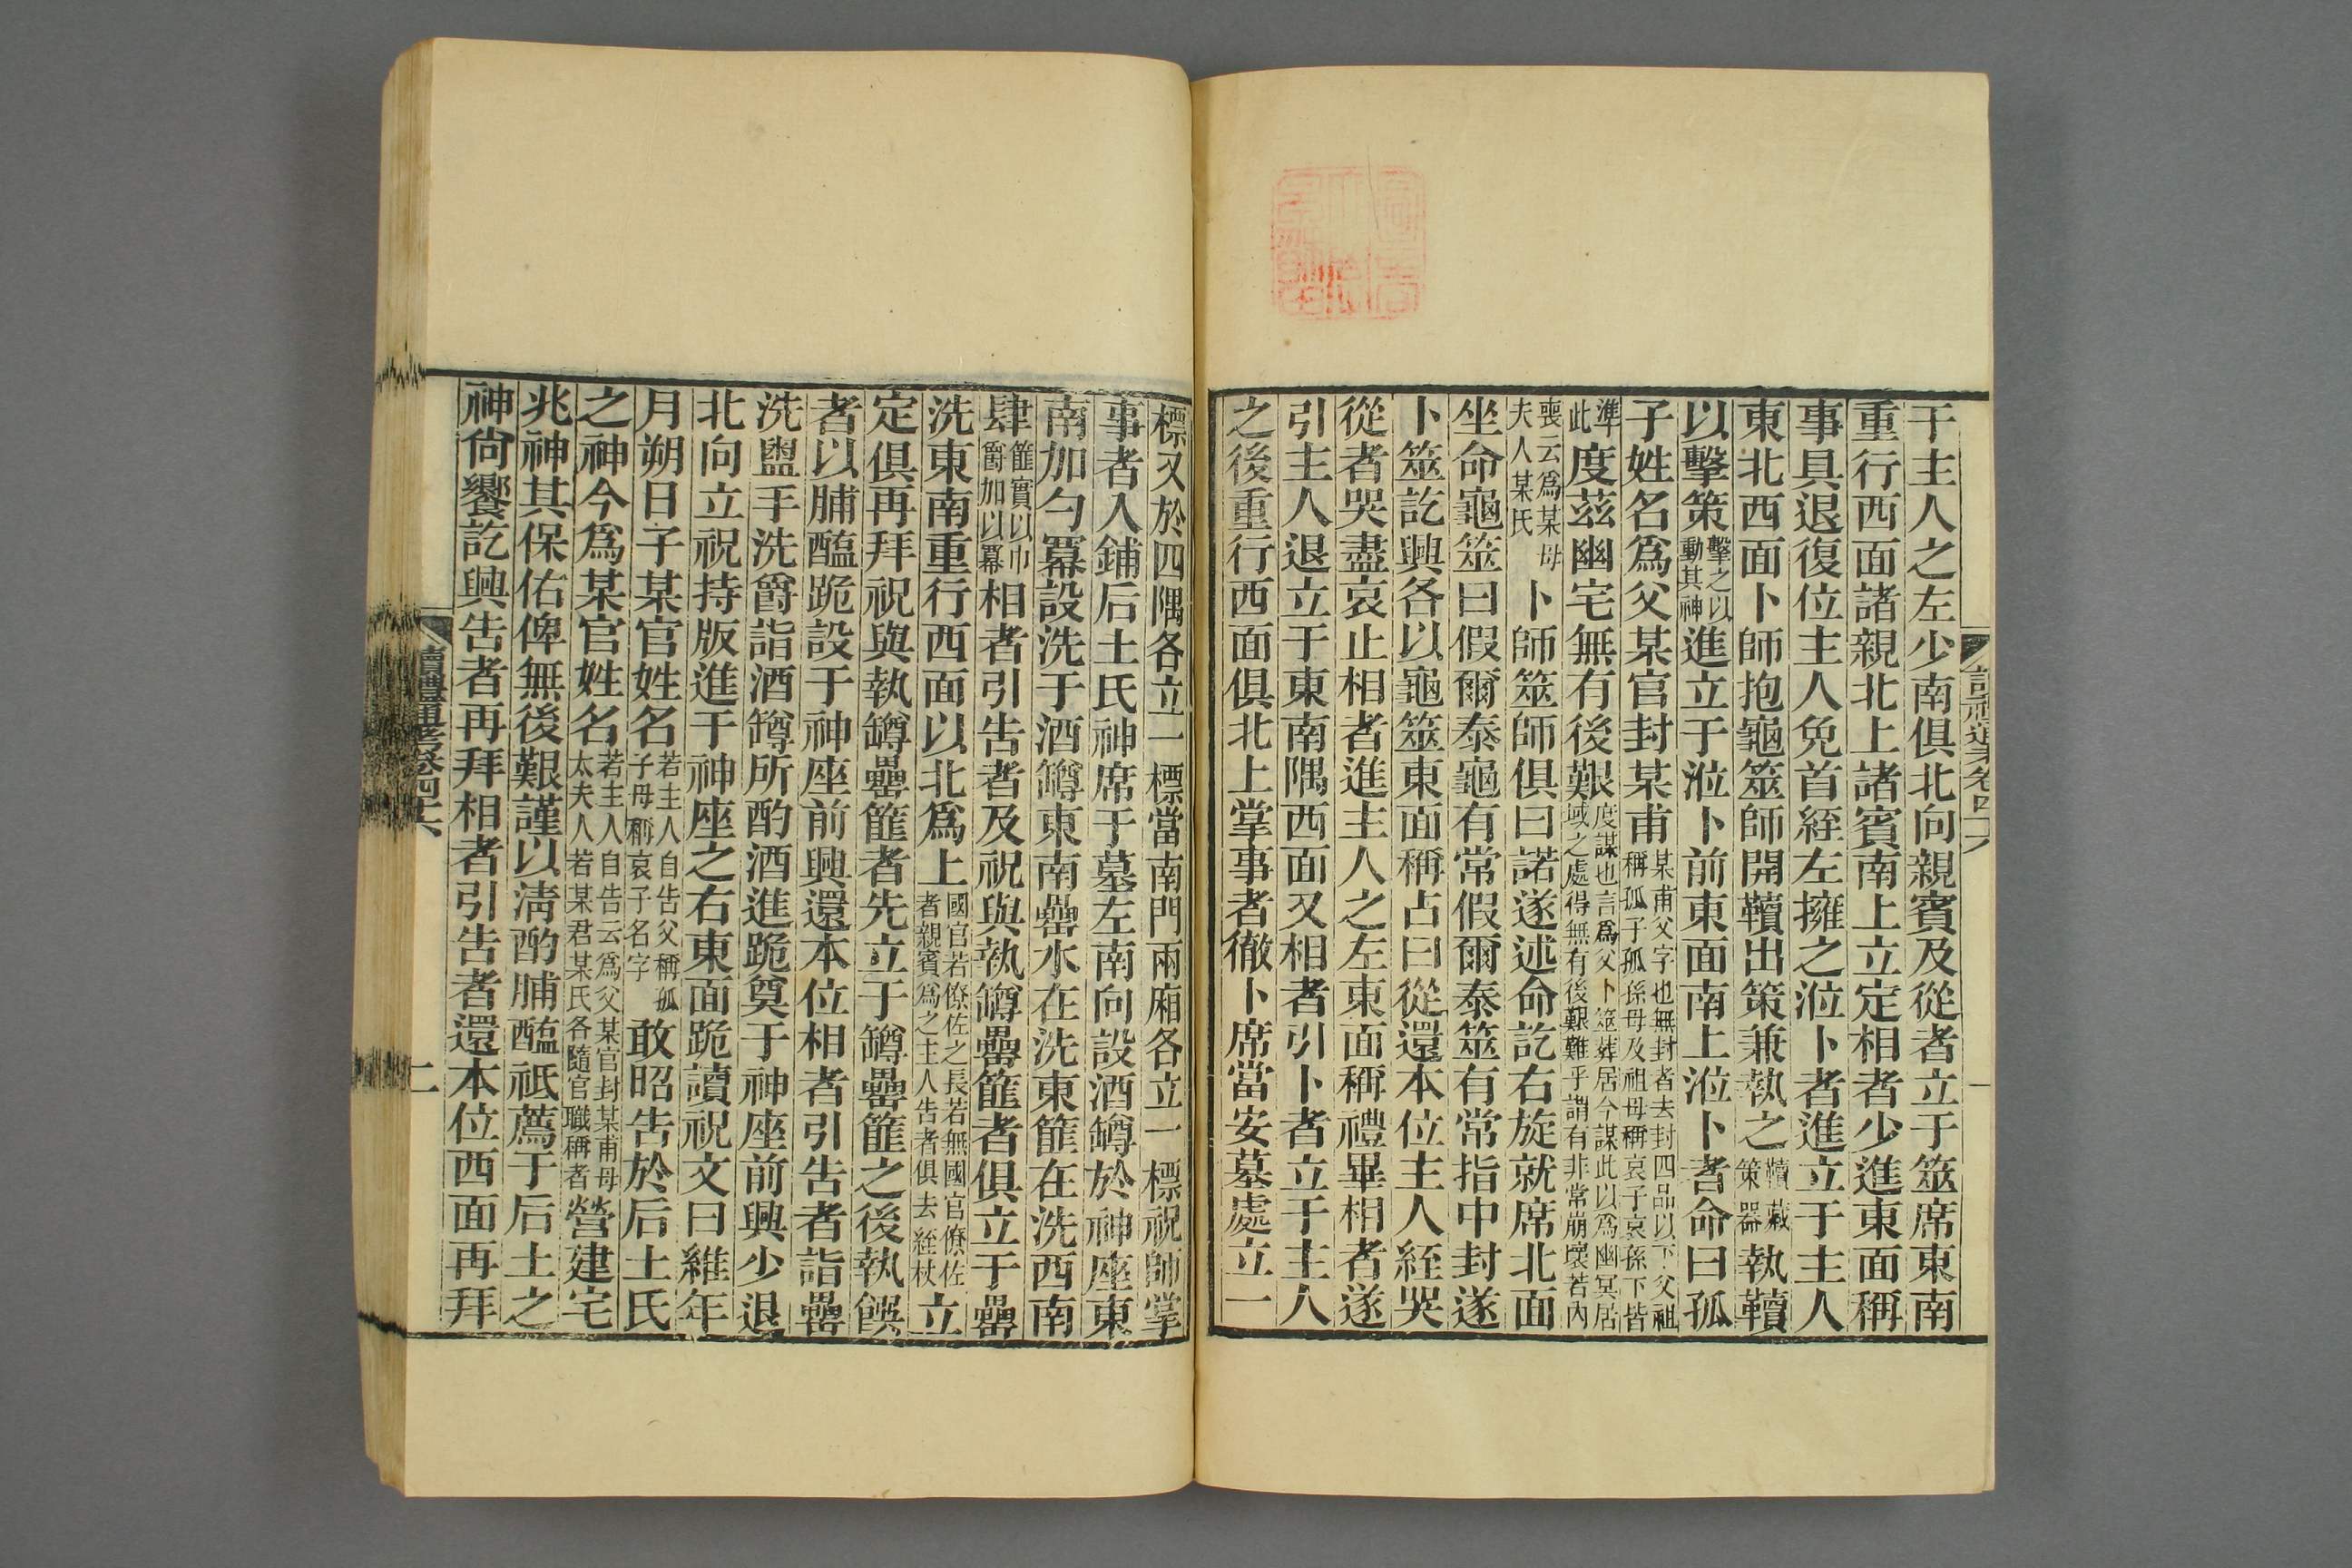 干主人之左少南俱北向親賓及從者立于筮席東南
重行西面諸親北上諸賓南上立定相者少進東面稱
事具退復位主人免首絰左擁之涖卜者進立于主人
東北西面卜師抱龜筮師開韇出策兼執之韇藏策器執韇
以擊策擊之以動其神進立于涖卜前東面南上涖卜者命曰孤
子姓名爲父某官封某甫某甫父字也無封者去封四品以下父祖稱孤子孤孫母及祖母稱哀子哀孫下皆
準此度茲幽宅無有後艱度謀也言爲父卜筮葬居今謀此以爲幽冥居域之處得無有後艱難乎謂有非常崩壞若內
喪云爲某母夫人某氏卜師筮師俱曰諾遂述命訖右旋就席北面
坐命龜筮曰假爾泰龜有常假爾泰筮有常指中封遂
卜筮訖興各以龜筮東面稱占曰從還本位主人絰哭
從者哭盡哀止相者進主人之左東面稱禮畢相者遂
引主人退立于東南隅西面又相者引卜者立于主人
之後重行西面俱北上掌事者徹卜席當安墓處立一
標又於四隅各立一標當南門兩廂各立一標祝師掌
事者入鋪后土氏神席于墓左南向設酒罇於神座東
南加勺羃設洗于酒罇東南罍水在洗東篚在洗西南
肆篚實以巾爵加以羃相者引告者及祝與執罇罍篚者俱立于罍
洗東南重行西面以北爲上國官若僚佐之長若無國官僚佐者親賓爲之主人告者俱去絰杖立
定俱再拜祝與執罇罍篚者先立于罇罍篚之後執饌
者以脯醢跪設于神座前興還本位相者引告者詣罍
洗盥手洗爵詣酒罇所酌酒進跪奠于神座前興少退
北向立祝持版進于神座之右東面跪讀祝文曰維年
月朔日子某官姓名若主人自告父稱孤子母稱哀子名字敢昭告於后土氏
之神今爲某官姓名若主人自告云爲父某官封某甫母太夫人若某君某氏各隨官職稱者營建宅
兆神其保佑俾無後艱謹以淸酌脯醢祗薦于后土之
神尙饗訖興告者再拜相者引告者還本位西面再拜
讀禮通考卷四六
二